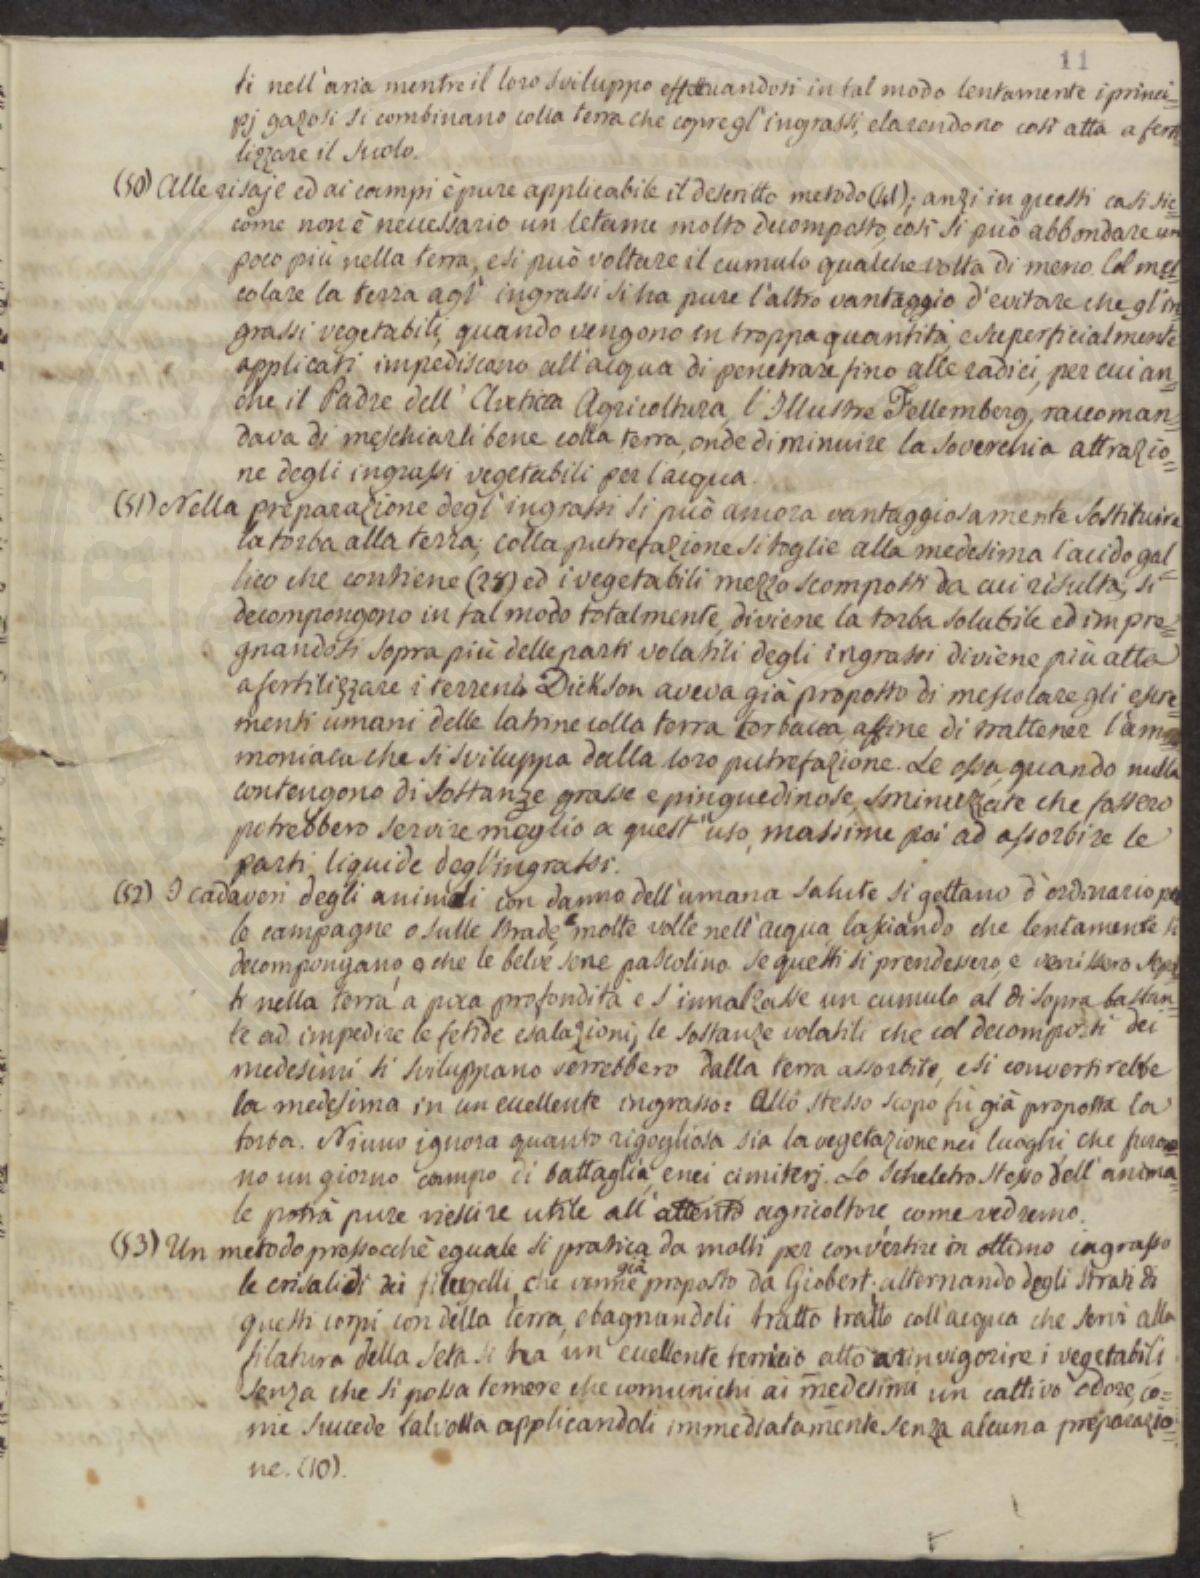 11
ti nell'aria mentre il loro sviluppo effettuandosi in tal modo lentamente i princi=
pj gazosi si combinano colla terra che copre gl'ingrassi, e la rendono così atta a ferti
lizzare il suolo.
(50) Alle risaje ed ai campi è pure applicabile il descritto metodo (41); anzi in questi casi sic=
come non è necessario un letame molto decomposto, così si può abbondare un
poco più nella terra, e si può voltare il cumulo qualche volta di meno. Col mes=
colare la terra agl' ingrassi si ha pure l'altro vantaggio d'evitare che gl'in
grassi vegetabili, quando vengono in troppa quantità, e superficialmente
applicati impediscano all'acqua di penetrare fino alle radici, per cui an=
che il Padre dell' Agricoltura, l'Illustre Fellemberg, raccoman=
dava di meschiarli bene colla terra, onde diminuire la soverchia attrazio=
ne degli ingrassi vegetabili per l'acqua.
(51) Nella preparazione degl'ingrassi si può ancora vantaggiosamente sostituire
la torba alla terra; colla putrefazione si toglie alla medesima l'acido gal=
lico che contiene (28) ed i vegetabili mezzo scomposti da cui risulta, si
decompongono in tal modo totalmente, diviene la torba solubile ed impre=
gnandosi sopra più delle parti volatili degli ingrassi diviene più atta
a fertilizzare i terreni. Dickson aveva già proposto di mescolare gli escre=
menti umani delle latrine colla terra torbacea, affine di trattener l'am=
moniaca che si sviluppa dalla loro putrefazione. Le ossa, quando nulla
contengono di sostanze grasse e pinguedinose, sminuzzate che fossero
potrebbero servire meglio a quest'uso, massime poi ad assorbire le
parti liquide degl'ingrassi.
(52) I cadaveri degli animali con danno dell'umana salute si gettano d'ordinario per
le campagne o sulle strade e molte volte nell'acqua lasciando che lentamente si
decompongano, o che le belve sene pascolino. Se questi si prendessero, e venissero sepol
ti nella terra, a poca profondità e s'innalzasse un cumulo al disopra bastan
te ad impedire le fetide esalazioni, le sostanze volatili che col decomporsi dei
medesimi si sviluppano verrebbero dalla terra assorbite, e si convertirebbe
la medesima in un eccellente ingrasso: Allo stesso scopo fù già proposta la
torba. Niuno ignora quanto rigogliosa sia la vegetazione nei luoghi che furo=
no un giorno campo di battaglia, e nei cimiterj. Lo scheletro stesso dell'anima=
le potrà pure riescire utile all'attento agricoltore, come vedremo.
(53) Un metodo pressocchè eguale si pratica da molti per convertire in ottimo ingrasso
le crisalidi dei filugelli, che venne già proposto da Giobert; alternando degli strati di
questi corpi con della terra, e bagnandoli tratto tratto coll'acqua che servì alla
filatura della seta si ha un eccellente terricio atto a rinvigorire i vegetabili
senza che si possa temere che comunichi ai medesimi un cattivo odore, co=
me succede talvolta applicandoli immediatamente senza alcuna preparazio=
ne. (10).